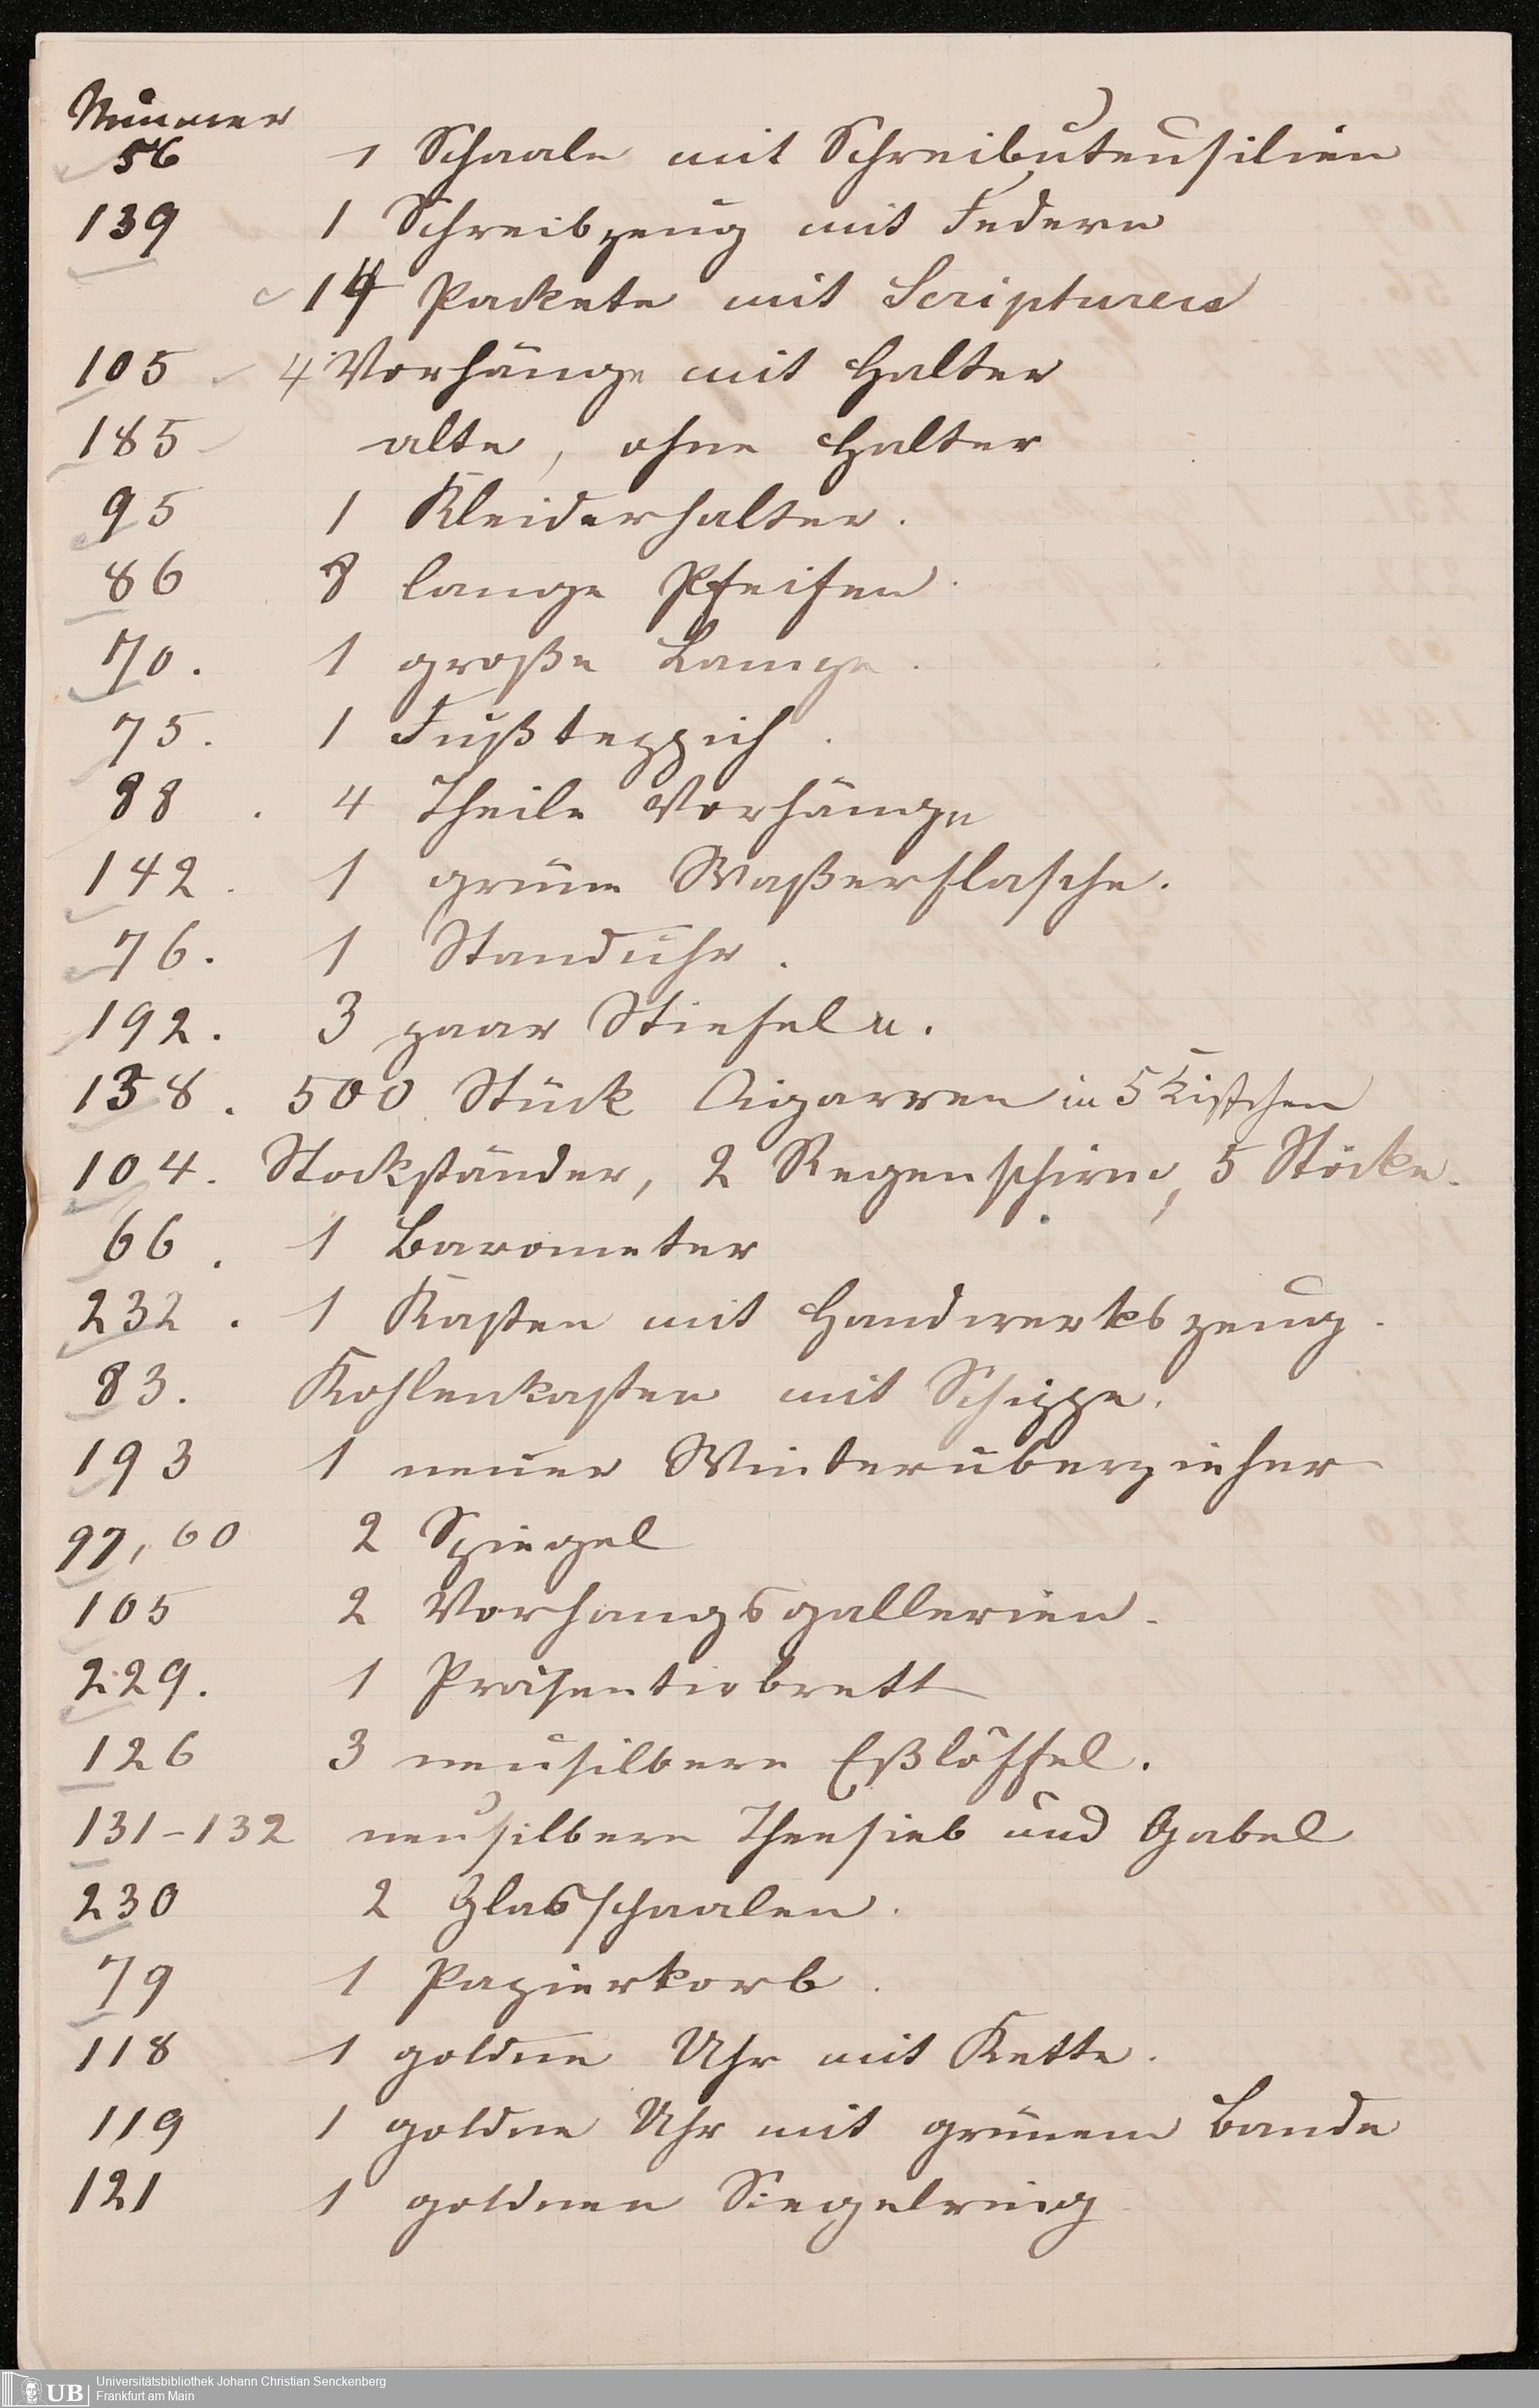 Nummer
56 1 Schaale mit Schreibutensilien
139 1 Schreibzeug mit Federn
14 Packete mit Scripturen
105 4 Vorhänge mit Halter
185 alte, ohne Halter
95 1 Kleiderhalter.
86 8 lange Pfeifen.
70. 1 große Lampe.
75. 1 Fußteppich.
88. 4 Theile Vorhänge
142. 1 grüne Waßerflasche.
76. 1 Standuhr.
192. 3 paar Stiefeln.
138. 500 Stück Cigarren in 5 Kistchen
104. Stockständer, 2 Regenschirm, 5 Stöcke.
66. 1 Barometer
232. 1 Kasten mit Handwerkszeug.
83. Kohlenkasten mit Schippe.
193 1 neuer Winterüberzieher
97, 60 2 Spiegel
105 2 Vorhangsgallerien.
229. 1 Präsentirbrett
126 3 neusilbere Eßlöffel.
131-132 neusilbern Theesieb und Gabel
230 2 Glasschaalen.
79 1 Papierkorb.
118 1 goldne Uhr mit Kette.
119 1 goldne Uhr mit grünem Bande
121 1 goldnen Siegelring
Universitätsbibliothek Johann Christian Senckenberg
UB Frankfurt am Main